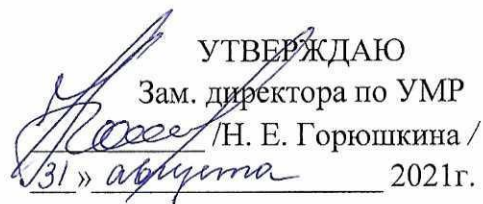 УТВЕРЖДАЮ
Зам. директора по УМР
/Н. Е. Горюшкина /
31 » августа 2021г.